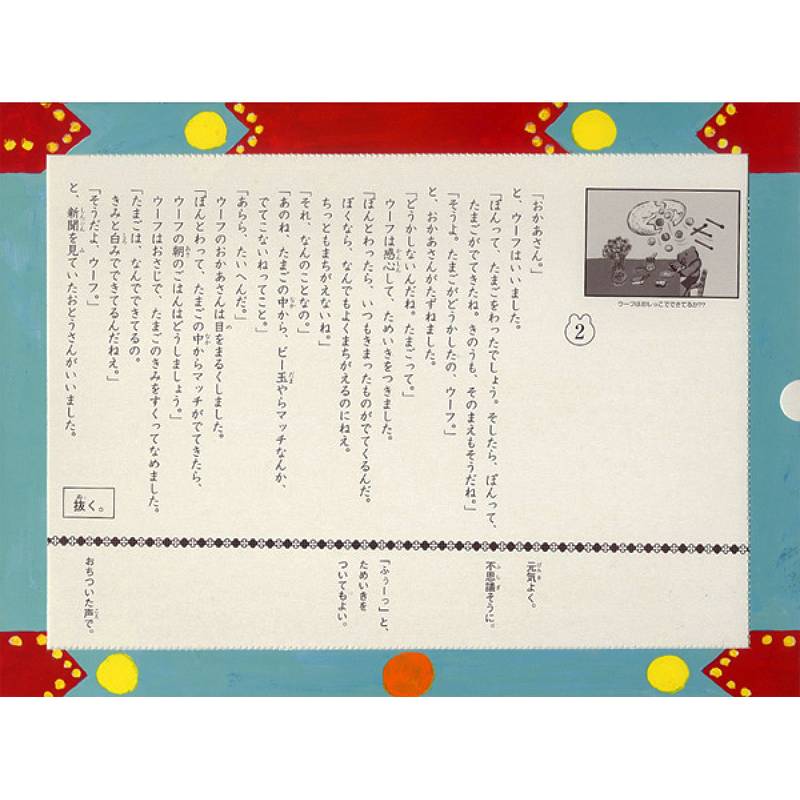 ウーフはおしっこでできてるか??
2
「おかあさん。」
と、ウーフはいいました。
「ぽんって、たまごをわったでしょう。そしたら、ぽんって、
たまごがでてきたね。きのうも、そのまえもそうだね。」
「そうよ。たまごがどうかしたの、ウーフ。」
と、おかあさんがたずねました。
「どうかしないんだね。たまごって。」
ウーフは感心して、ためいきをつきました。
「ぽんとわったら、いつもきまったものがでてくるんだ。
ぼくなら、なんでもよくまちがえるのにねえ。
ちっともまちがえないね。」
「それ、なんのことなの。」
「あのね、たまごの中から、ビー玉やらマッチなんか、
でてこないねってこと。」
「あらら、たいへんだ。」
ウーフのおかあさんは目をまるくしました。
「ぽんとわって、たまごの中からマッチがでてきたら、
ウーフの朝のごはんはどうしましょう。」
ウーフはおさじで、たまごのきみをすくってなめました。
「たまごは、なんでできてるの。
きみと白みでできてるんだねえ。」
「そうだよ、ウーフ。」
と、新聞を見ていたおとうさんがいいました。
抜く。
元気よく。
不思議そうに。
「ふぅーっ」と、
ためいきを
ついてもよい。
おちついた声で。